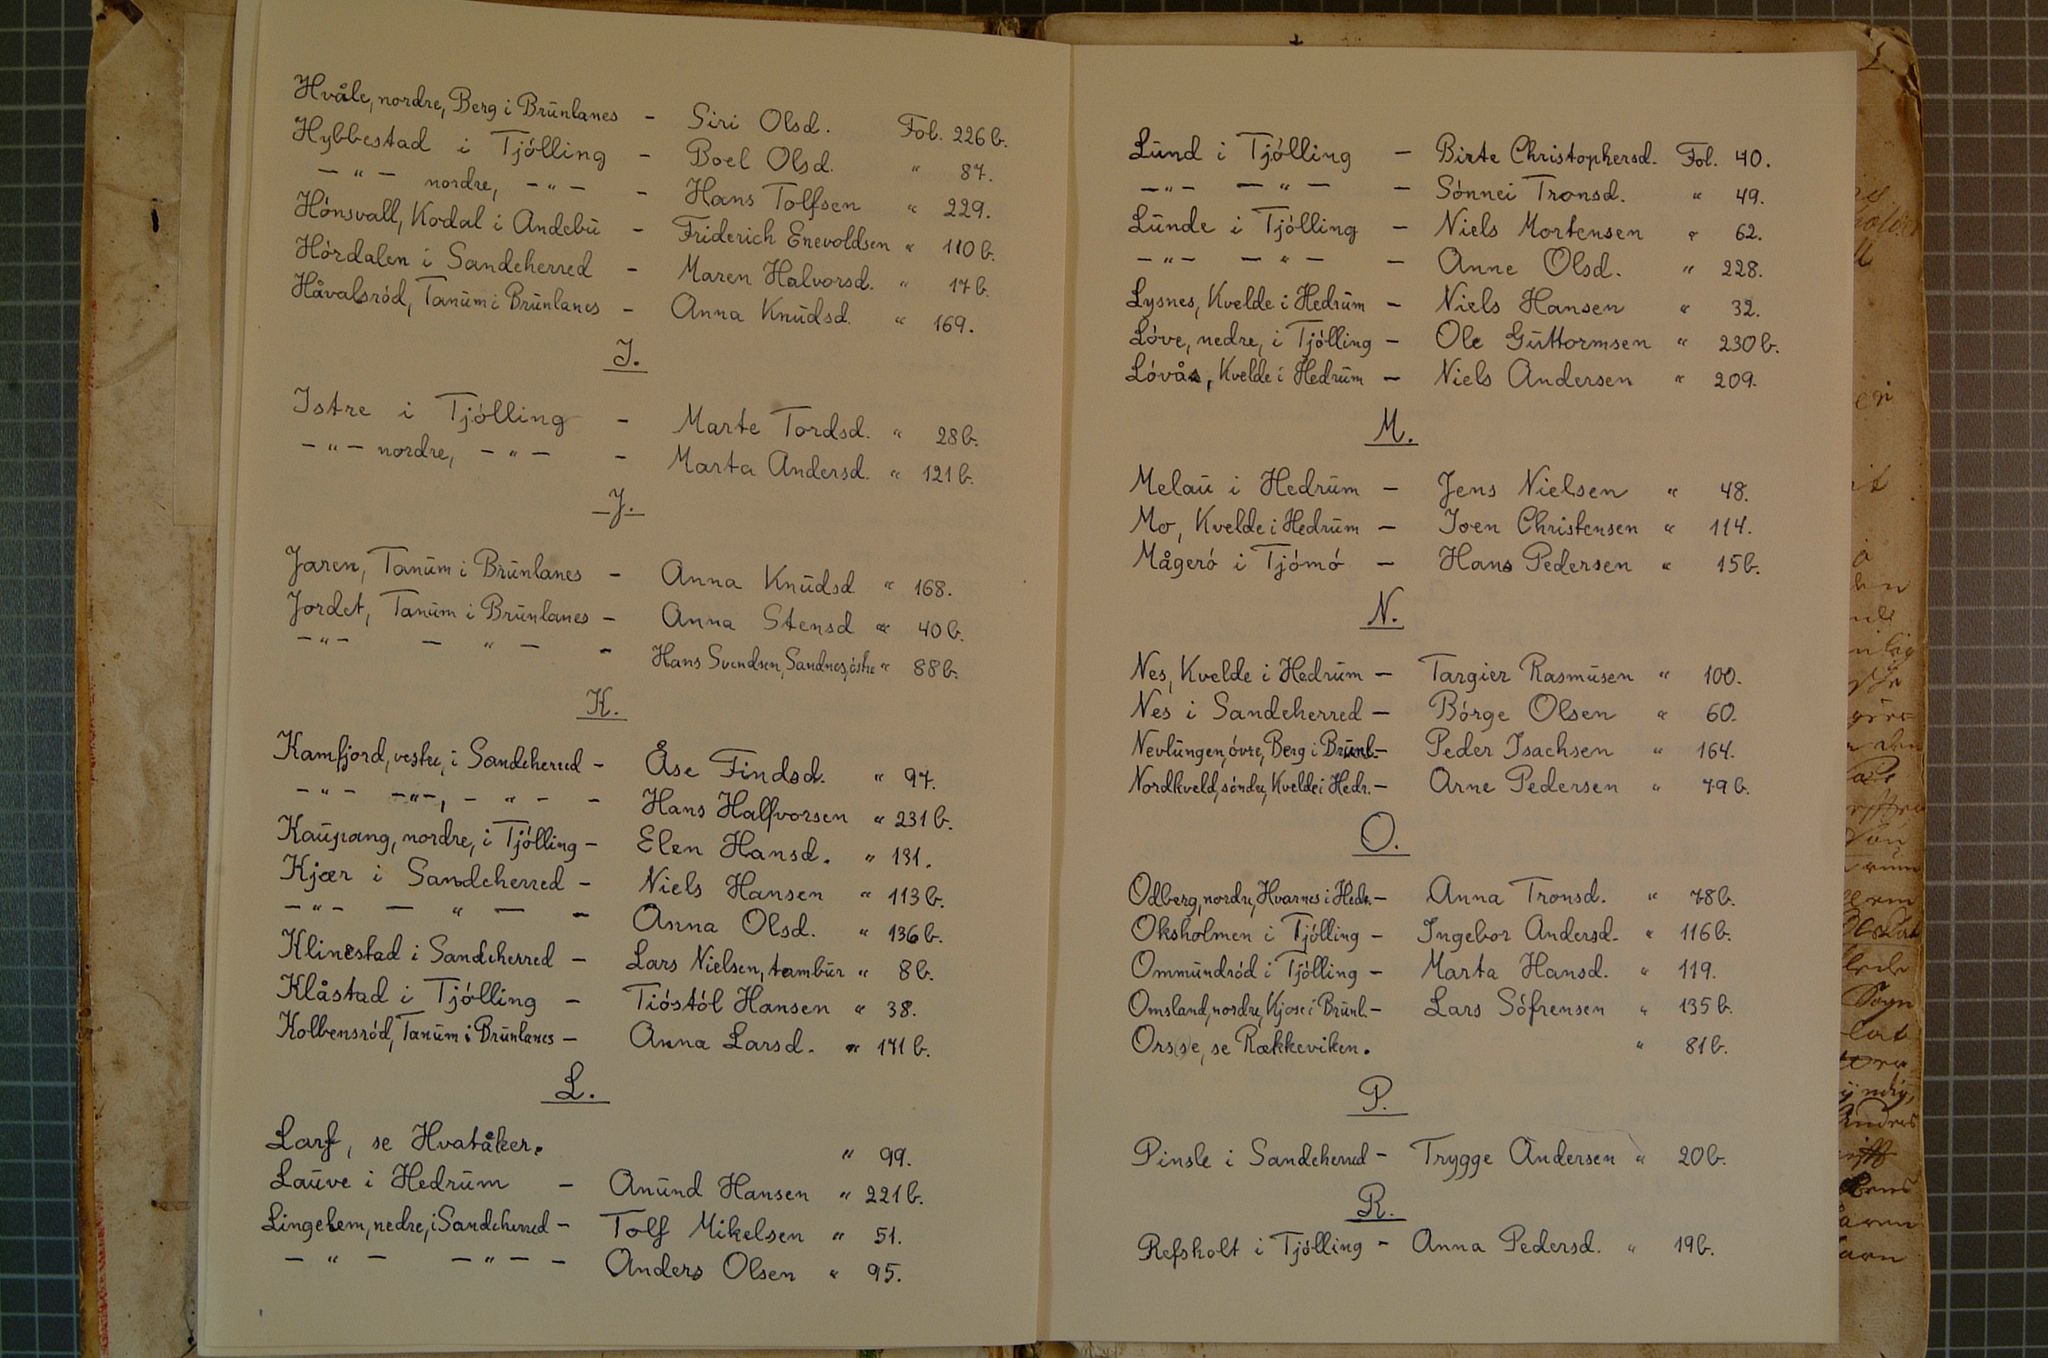 Hvåle, nordre, Berg i Brunlanes - Siri Olsd. Fol. 226 b.
Hybbestad i Tjölling - Boel Olsd. " 87.
- " - nordre, - " - - Hans Tolfsen " 229.
Hönsvall, Kodal i Andebu - Friderich Enevoldsen " 110 b.
Hördalen i Sandeherred - Maren Halvorsd. " 17 b.
Håvalsröd, Tanum i Brunlanes - Anna Knudsd. " 169.
I.
Istre i Tjölling - Marte Tordsd. " 28 b.
- " - nordre, - " - - Marta Andersd. " 121 b.
J.
Jaren, Tanum i Brunlanes - Anna Knudsd " 168.
Jordet, Tanum i Brunlanes - Anna Stensd " 40 b.
- " - - " - - Hans Svendsen, Sandnes, östre " 88 b.
K.
Kamfjord, vestre, i Sandeherred - Åse Findsd. " 97.
- " - - " -, - " - - Hans Halfvorsen " 231 b.
Kaupang, nordre, i Tjölling - Elen Hansd. " 131.
Kjær i Sandeherred - Niels Hansen " 113 b.
- " - - " - - Anna Olsd. " 136 b.
Klinestad i Sandeherred - Lars Nielsen, tambur " 8 b.
Klåstad i Tjölling - Tiöstöl Hansen " 38.
Kolbensröd, Tanum i Brunlanes - Anna Larsd. " 171 b.
L.
Larf, se Hvatåker. " 99.
Lauve i Hedrum - Anund Hansen " 221 b.
Lingelem, nedre, i Sandeherred - Tolf Mikelsen " 51.
- " - - " - - Anders Olsen " 95.
Lund i Tjölling - Birte Christophersd. Fol. 40.
- " - - " - - Sönnei Tronsd. " 49.
Lunde i Tjölling - Niels Mortensen " 62.
- " - - " - - Anne Olsd. " 228.
Lysnes, Kvelde i Hedrum - Niels Hansen " 32.
Löve, nedre, i Tjölling - Ole Guttormsen " 230 b.
Lövås, Kvelde i Hedrum - Niels Andersen " 209.
M.
Melau i Hedrum - Jens Nielsen " 48.
Mo, Kvelde i Hedrum - Joen Christensen " 114.
Mågerö i Tjömö - Hans Pedersen " 15 b.
N.
Nes, Kvelde i Hedrum - Targier Rasmusen " 100.
Nes i Sandeherred - Börge Olsen " 60.
Nevlungen, övre, Berg i Brunl. - Peder Isachsen " 164.
Nordkveld, söndre, Kvelde i Hedr. - Arne Pedersen " 79 b.
O.
Odberg, nordre, Hvarnes i Hedr. - Anna Tronsd. " 78 b.
Oksholmen i Tjölling - Ingebor Andersd. " 116 b.
Ommundröd i Tjölling - Marta Hansd. " 119.
Omsland, nordre, Kjose i Brunl. - Lars Söfrensen " 135 b.
Ors(s)e, se Rækkeviken. " 81 b.
P.
Pinsle i Sandeherred - Trygge Andersen " 20 b.
R.
Refsholt i Tjölling - Anna Pedersd. " 19 b.